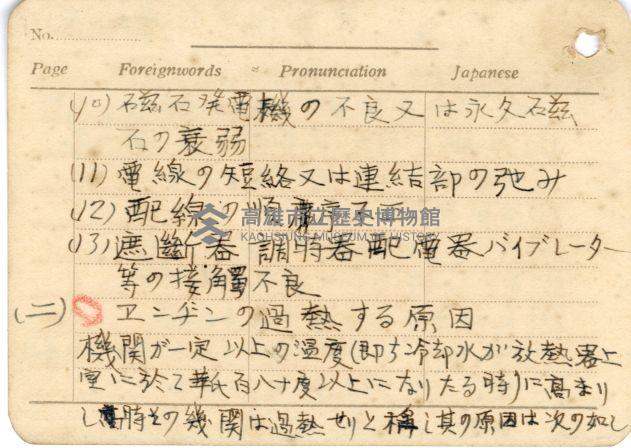 No.
Page Foreignwords Pronunciation Japanese
(10) 磁石発電機の不良又は永久石玆
石の衰弱
(11) 電線の短絡又は連結部の弛み
(12) 配線の順
高雄市立歷史博物館
KAOHSIUNG MUSEUM OF HISTORY
(13) 遮斷器 調時器 配電器 バイブレーター
等の接觸不良
(二) エンヂンの過熱する原因
機関が一定以上の温度(即ち冷却水が放熱器上
室に於て華氏百八十度以上になりたる時)に高まり
し時その幾関は過熱せりと稱し其の原因は次の如し